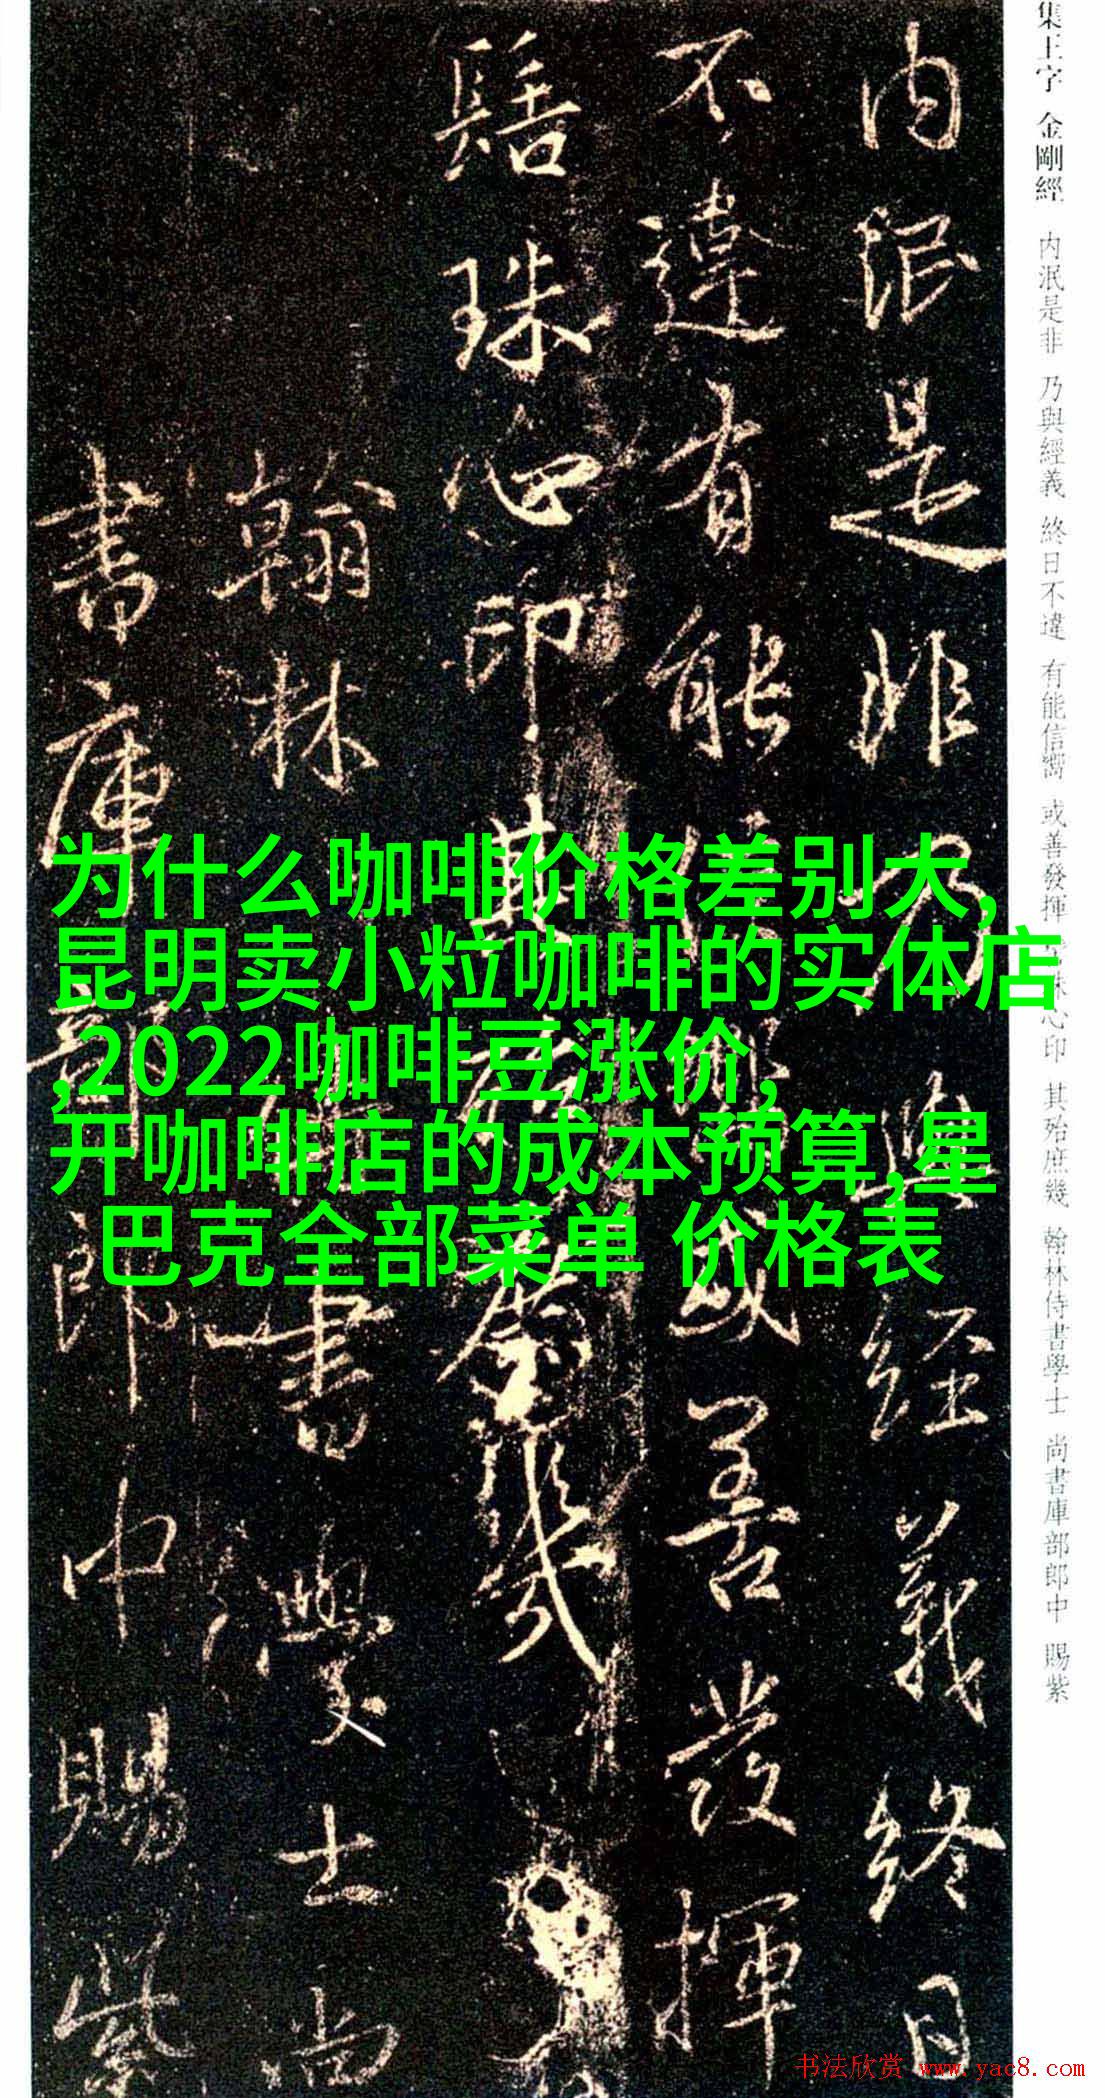 集王字 金剛經 内泯是非 乃與經義 終日不違 有能信嚮 或善發揮 珠心印 其殆庶幾 翰林侍書學士 尚書庫部郎中 賜紫
内泯是非乃與經義終日
不違有能信或善發揮
髻珠心印其庶幾
翰林書學士尚
書庫部郎中賜紫
为什么咖啡价格差别大,
昆明卖小粒咖啡的实体店
,2022咖啡豆涨价,
开咖啡店的成本预算,星
巴克全部菜单 价格表
书法欣赏 www.yac8.com